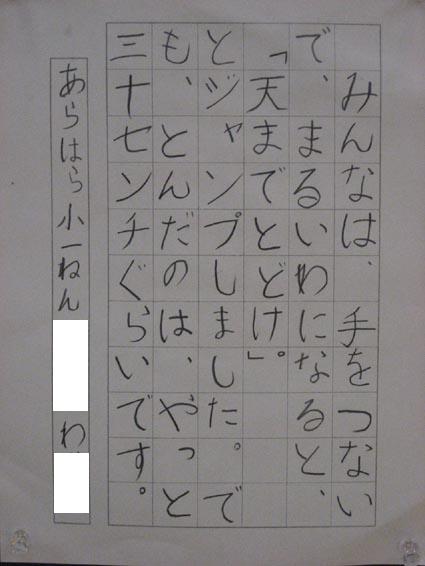 みんなは、手をつない
で、まるいわになると、
「天までとどけ」。
とジャンプしました。で
も、とんだのは、やっと
三十センチぐらいです。
あらはら小一ねん わ